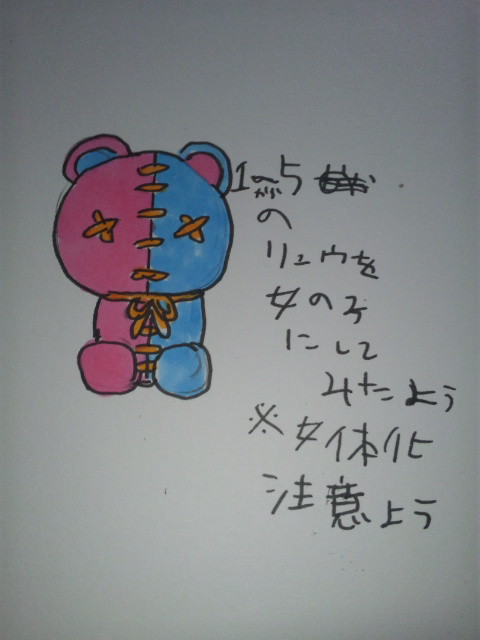 1〜5
の
リュウを
女の子
にして
みたよう
※女体化
注意よう